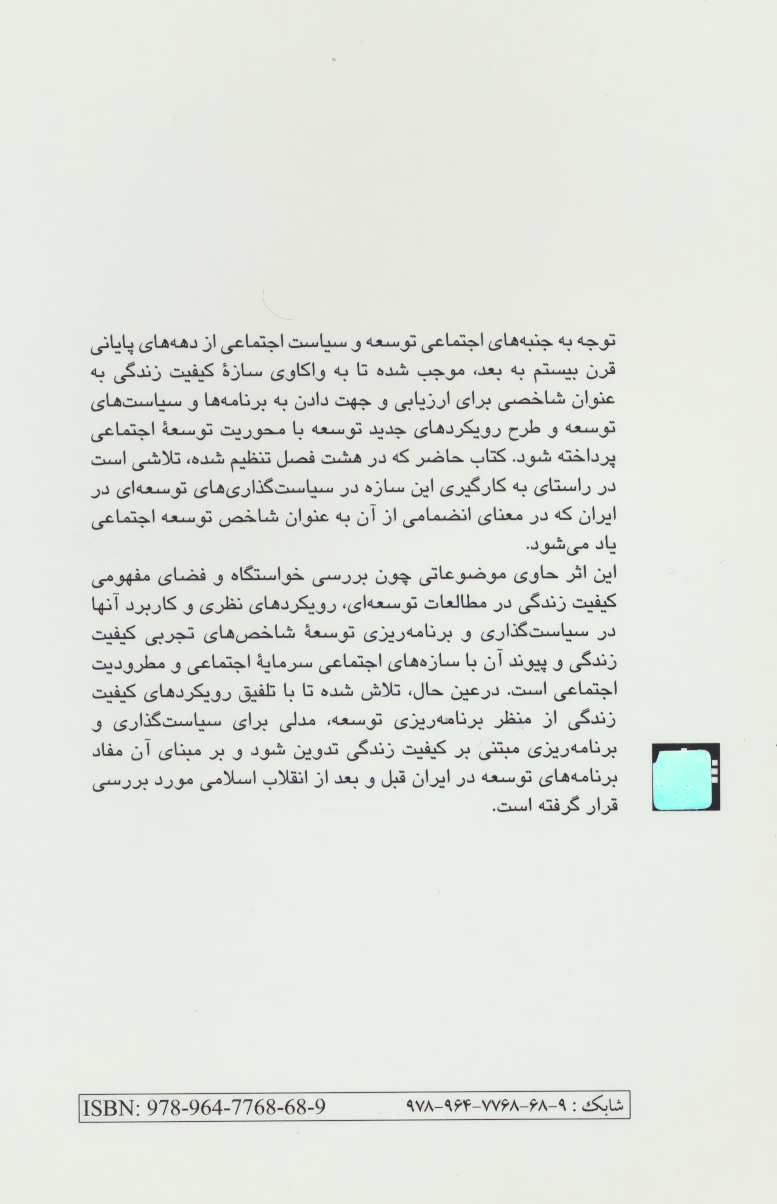 توجه به جنبه‌های اجتماعی توسعه و سیاست اجتماعی از دهه‌های پایانی
قرن بیستم به بعد، موجب شده تا به واکاوی سازهٔ کیفیت زندگی به
عنوان شاخصی برای ارزیابی و جهت دادن به برنامه‌ها و سیاست‌های
توسعه و طرح رویکردهای جدید توسعه با محوریت توسعهٔ اجتماعی
پرداخته شود. کتاب حاضر که در هشت فصل تنظیم شده، تلاشی است
در راستای به کارگیری این سازه در سیاست‌گذاری‌های توسعه‌ای در
ایران که در معنای انضمامی از آن به عنوان شاخص توسعه اجتماعی
یاد می‌شود.
این اثر حاوی موضوعاتی چون بررسی خواستگاه و فضای مفهومی
کیفیت زندگی در مطالعات توسعه‌ای، رویکردهای نظری و کاربرد آنها
در سیاست‌گذاری و برنامه‌ریزی توسعهٔ شاخص‌های تجربی کیفیت
زندگی و پیوند آن با سازه‌های اجتماعی سرمایهٔ اجتماعی و مطرودیت
اجتماعی است. درعین حال، تلاش شده تا با تلفیق رویکردهای کیفیت
زندگی از منظر برنامه‌ریزی توسعه، مدلی برای سیاست‌گذاری و
برنامه‌ریزی مبتنی بر کیفیت زندگی تدوین شود و بر مبنای آن مفاد
برنامه‌های توسعه در ایران قبل و بعد از انقلاب اسلامی مورد بررسی
قرار گرفته است.
شابک : ۹-۶۸-۷۷۶۸-۹۶۴-۹۷۸ ISBN: 978-964-7768-68-9